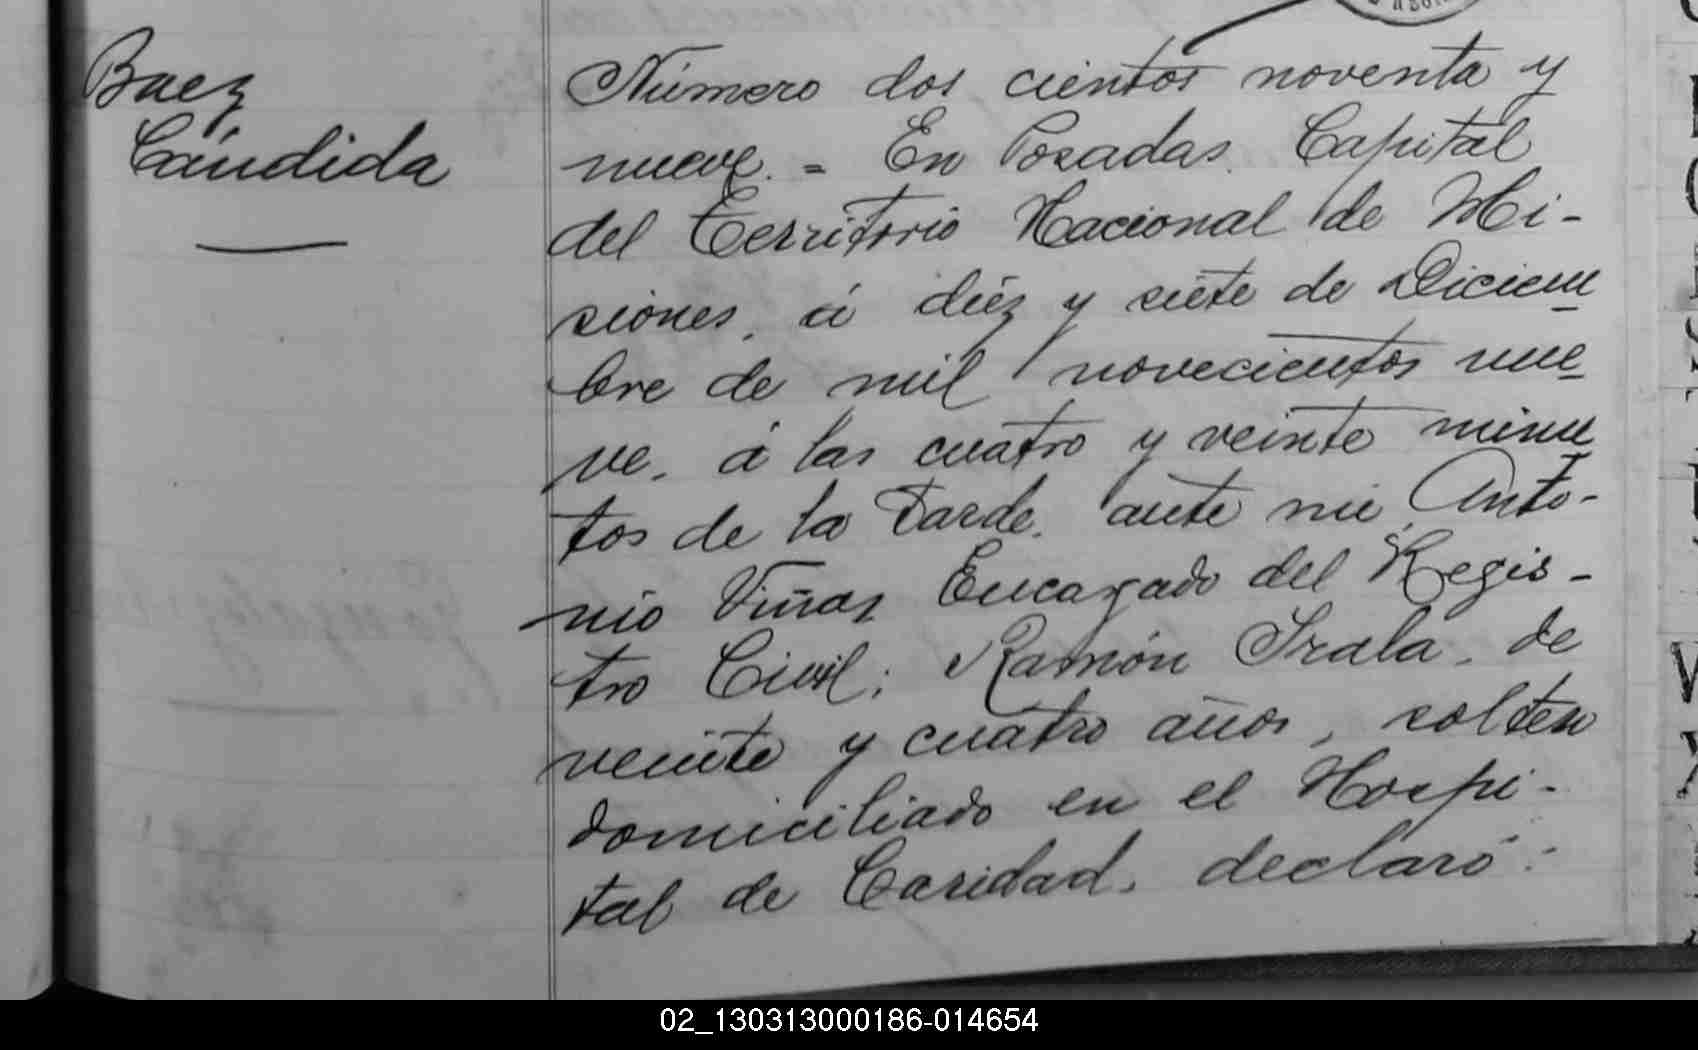 Baez
Cándida
Número dos cientos noventa y
nueve. = En Posadas. Capital
del Territorio Nacional de Mi-
siones, á diéz y siete de Diciem
bre de mil novecientos nue
ve. á las cuatro y veinte minu
tos de la tarde. ante mi, Anto-
nio Viñas Encargado del Regis-
tro Civil; Ramón Irala, de
veinte y cuatro años, soltero
domiciliado en el Hospi-
tal de Caridad, declaró:
02_130313000186-014654